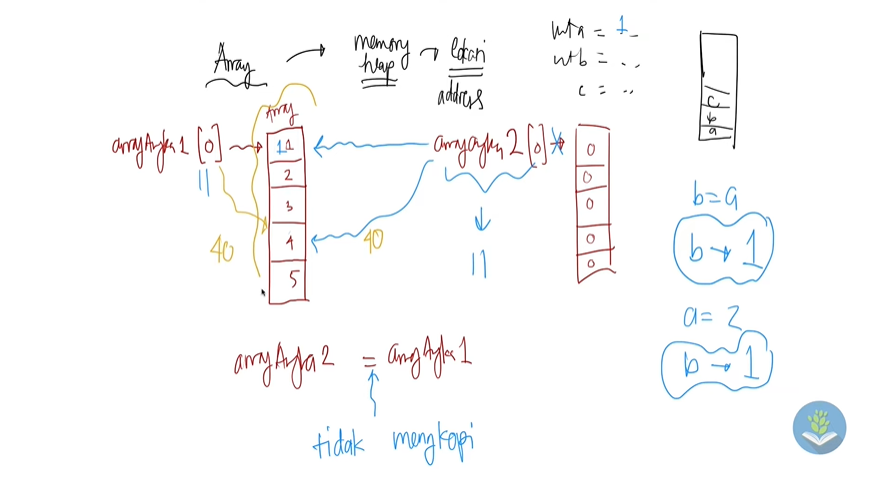 Array → memory heap → lokasi address
int a = 1
int b = ..
c = ..
c
b
a
Array
arrayAngka1 [0] → 11
2
3
4
5
11
40
arrayAngka2 [0] →
0
0
0
0
0
40
11
b = a
b → 1
a = 2
b → 1
arrayAngka2 = arrayAngka1
tidak mengkopi